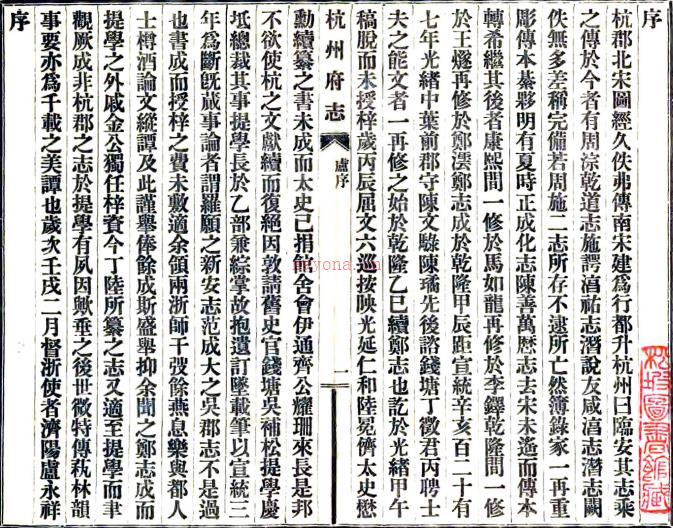 序
杭郡北宋圖經久佚弗傳南宋建爲行都升杭州曰臨安其志乘
之傳於今者有周淙乾道志施諤淳祐志潛說友咸淳志潛志闕
佚無多差稱完備若周施二志所存不逮所亡然簿錄家一再重
彫傳本綦夥明有夏時正成化志陳善萬厯志去宋未遙而傳本
轉希繼其後者康熙間一修於馬如龍再修於李鐸乾隆間一修
於王燧再修於鄭澐鄭志成於乾隆甲辰距宣統辛亥百二十有
七年光緒中葉前郡守陳文騄陳璚先後諮錢塘丁徵君丙聘士
夫之能文者一再修之始於乾隆乙巳續鄭志也訖於光緒甲午
稿脫而未授梓歲丙辰屈文六巡按映光延仁和陸冕儕太史懋
杭州府志
盧序
一
勳續纂之書未成而太史已捐館舍會伊通齊公耀珊來長是邦
不欲使杭之文獻續而復絕因敦請舊史官錢塘吳補松提學慶
坻總裁其事提學長於乙部兼綜掌故抱遺訂墜載筆以宣統三
年爲斷旣蕆事論者謂羅願之新安志范成大之吳郡志不是過
也書成而授梓之費未敷適余領兩浙師干弢餘燕息樂與都人
士樽酒論文縱譚及此謹舉俸餘成斯盛舉抑余聞之鄭志成而
提學之外戚金公獨任梓資今丁陸所纂之志又適至提學而聿
觀厥成非杭郡之志於提學有夙因歟垂之後世微特傳埶林韻
事要亦爲千載之美譚也歲次壬戌二月督浙使者濟陽盧永祥
序
nayona.cn